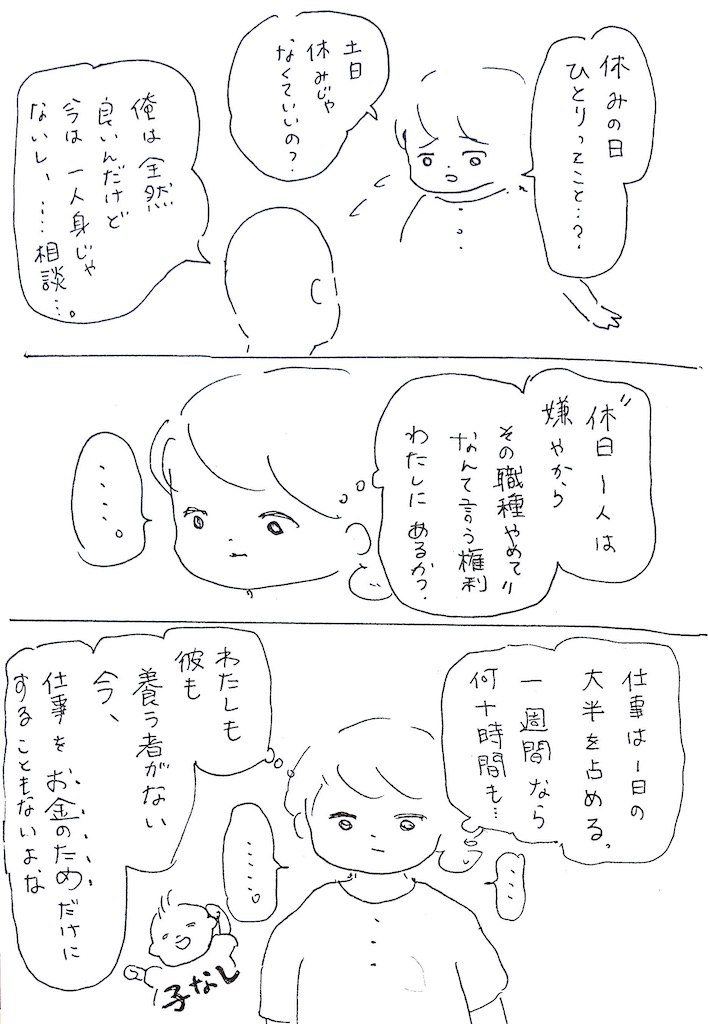 休みの日
ひとりってこと…?
土日
休みじゃ
なくていいの?
俺は全然
良いんだけど
今は一人身じゃ
ないし、……相談…。
“休日1人は
嫌やから
その職種やめて”
なんて言う権利
わたしにあるか?
……。
仕事は1日の
大半を占める。
一週間なら
何十時間も…
…
……。
わたしも
彼も
養う者がない
今、
仕事をお金のためだけに
することもないよな
子なし